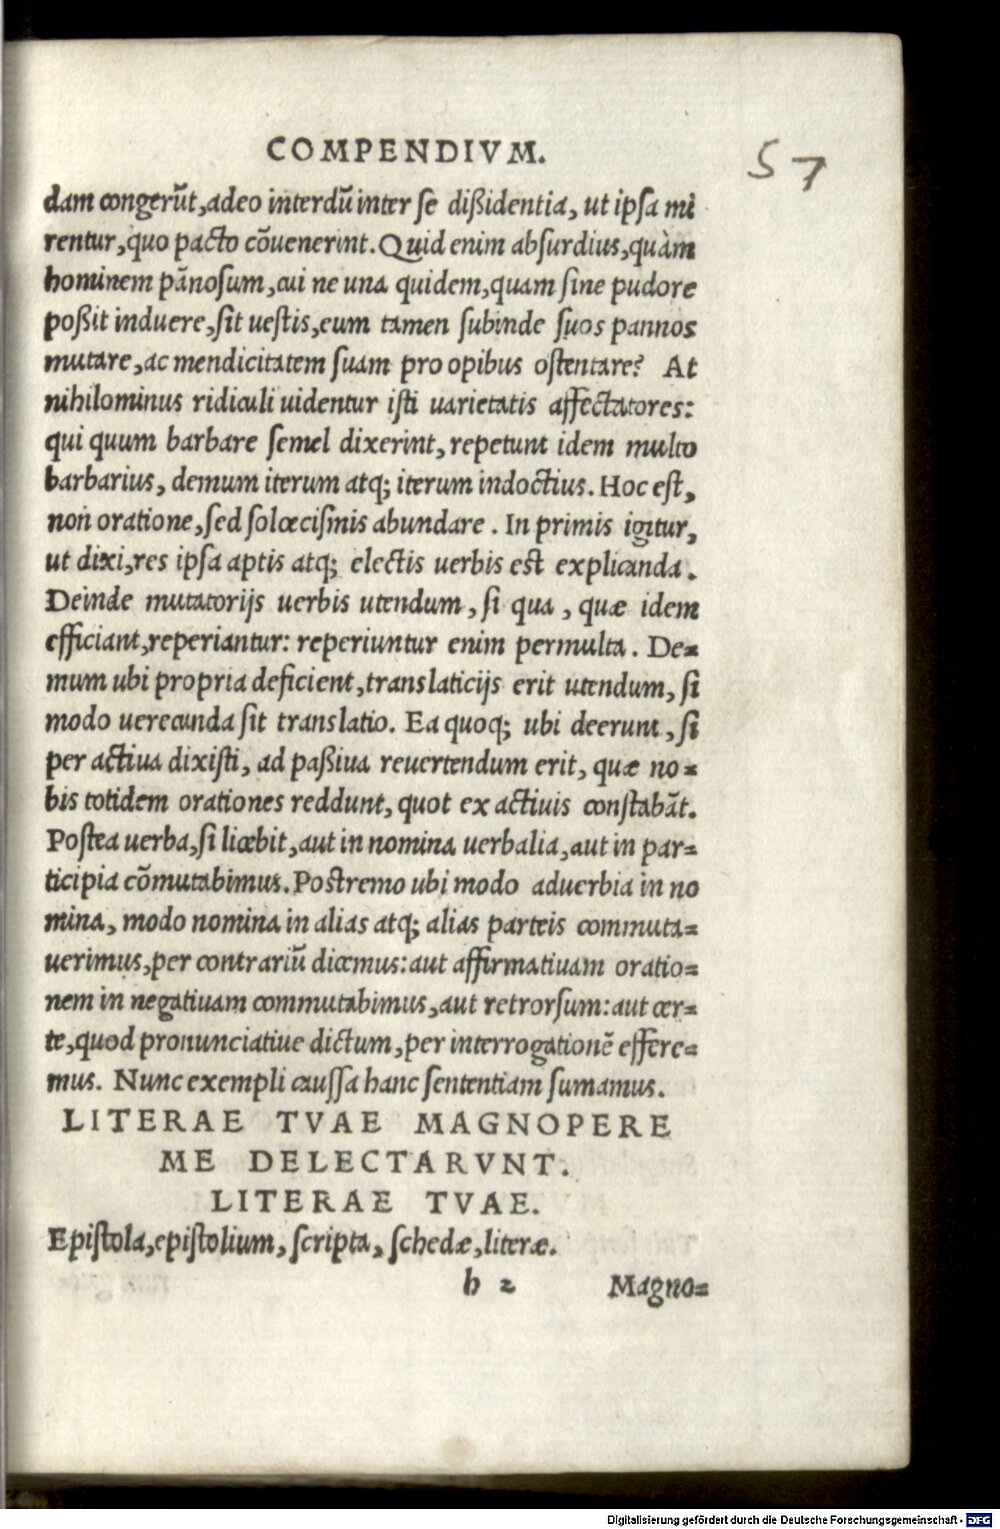 COMPENDIVM.
57
dam congerũt, adeo interdũ inter se dißidentia, ut ipsa mi
rentur, quo pacto cõuenerint. Quid enim absurdius, quàm
hominem pãnosum, cui ne una quidem, quam sine pudore
poßit induere, sit uestis, eum tamen subinde suos pannos
mutare, ac mendicitatem suam pro opibus ostentare? At
nihilominus ridiculi uidentur isti uarietatis affectatores:
qui quum barbare semel dixerint, repetunt idem multo
barbarius, demum iterum atq; iterum indoctius. Hoc est,
non oratione, sed solœcismis abundare. In primis igitur,
ut dixi, res ipsa aptis atq; electis uerbis est explicanda.
Deinde mutatorijs uerbis utendum, si qua, quæ idem
efficiant, reperiantur: reperiuntur enim permulta. De-
mum ubi propria deficient, translaticijs erit utendum, si
modo uerecunda sit translatio. Ea quoq; ubi deerunt, si
per actiua dixisti, ad paßiua reuertendum erit, quæ no-
bis totidem orationes reddunt, quot ex actiuis constabãt.
Postea uerba, si licebit, aut in nomina uerbalia, aut in par-
ticipia cõmutabimus. Postremo ubi modo aduerbia in no
mina, modo nomina in alias atq; alias parteis commuta-
uerimus, per contrariũ dicemus: aut affirmatiuam oratio-
nem in negatiuam commutabimus, aut retrorsum: aut cer-
te, quod pronunciatiue dictum, per interrogationẽ effere-
mus. Nunc exempli caussa hanc sententiam sumamus.
LITERAE TVAE MAGNOPERE
ME DELECTARVNT.
LITERAE TVAE.
Epistola, epistolium, scripta, schedæ, literæ.
h 2 Magno-
Digitalisierung gefördert durch die Deutsche Forschungsgemeinschaft - DFG